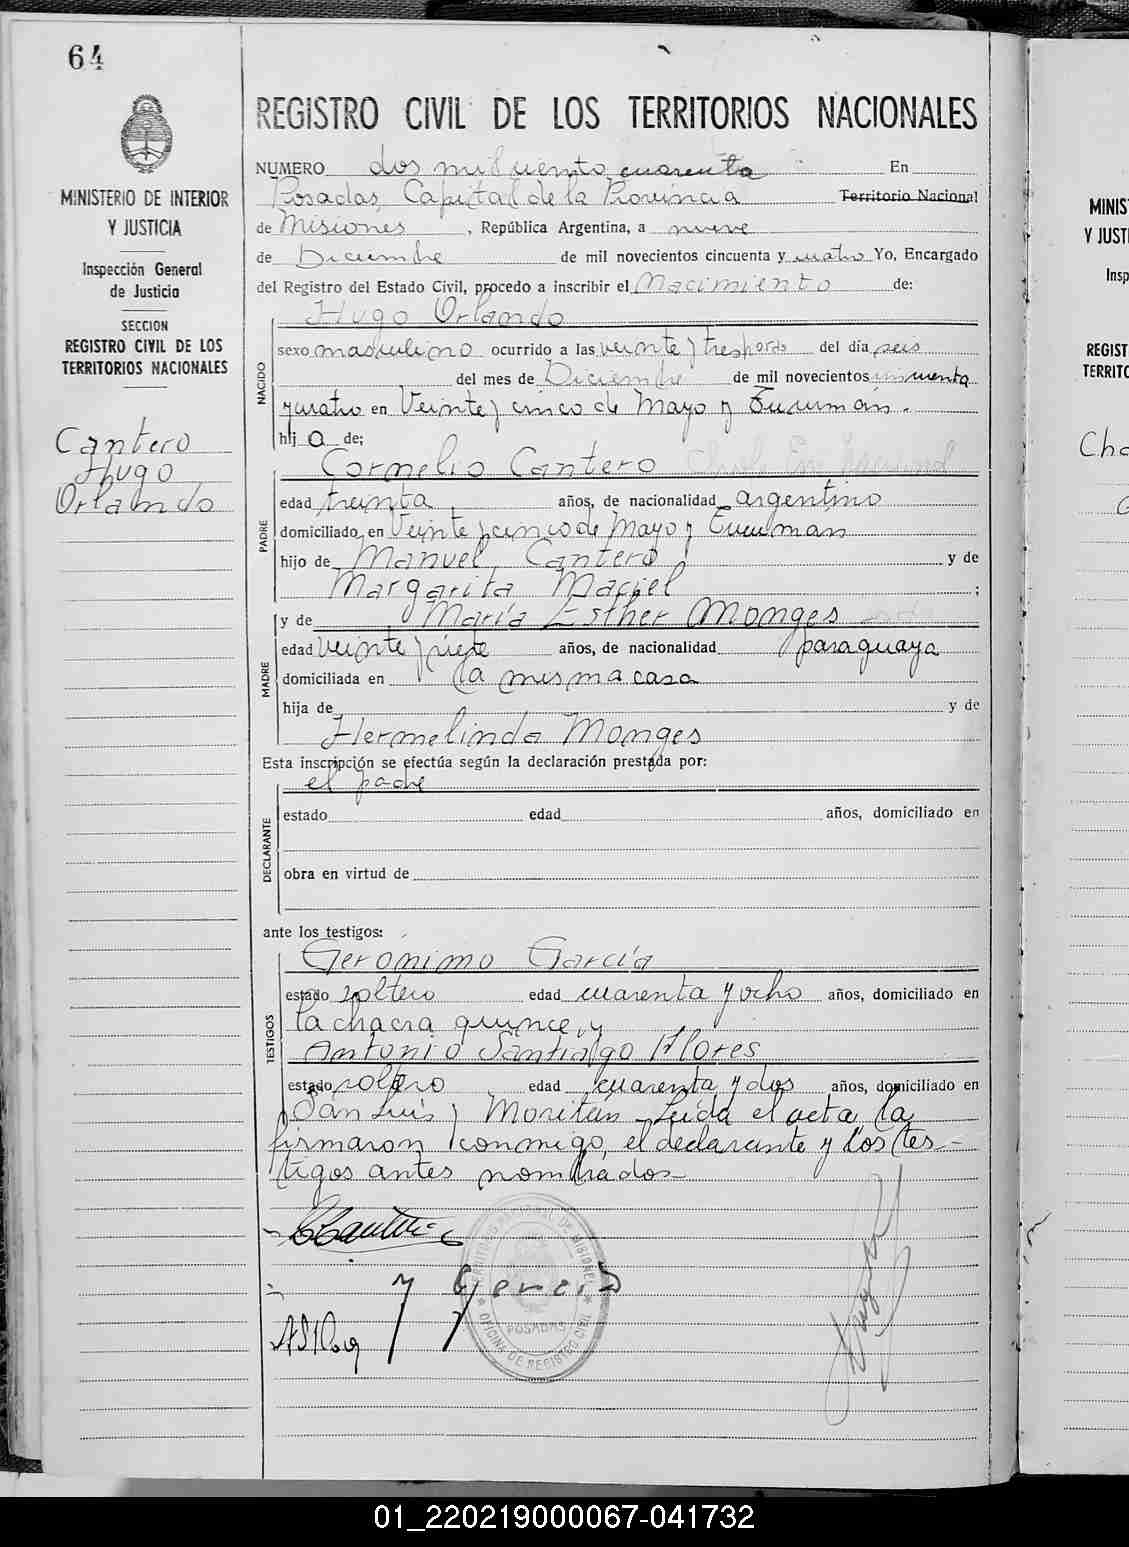 64
MINISTERIO DE INTERIOR
Y JUSTICIA
Inspección General
de Justicia
SECCION
REGISTRO CIVIL DE LOS
TERRITORIOS NACIONALES
Cantero
Hugo
Orlando
REGISTRO CIVIL DE LOS TERRITORIOS NACIONALES
NUMERO dos mil ciento cuarenta En
Posadas, Capital de la Provincia Territorio Nacional
de Misiones, República Argentina, a nueve
de Diciembre de mil novecientos cincuenta y cuatro Yo, Encargado
del Registro del Estado Civil, procedo a inscribir el Nacimiento de:
NACIDO
Hugo Orlando
sexo masculino ocurrido a las veinte y tres horas del día seis
del mes de Diciembre de mil novecientos cincuenta
y cuatro en Veinte y cinco de Mayo y Tucumán.
hij o de;
PADRE
Cornelio Cantero
edad treinta años, de nacionalidad argentino
domiciliado en Veinte y cinco de Mayo y Tucuman
hijo de Manuel Cantero y de
Margarita Maciel ;
MADRE
y de María Esther Monges
edad veinte y siete años, de nacionalidad paraguaya
domiciliada en la misma casa
hija de y de
Hermelinda Monges
Esta inscripción se efectúa según la declaración prestada por:
DECLARANTE
el padre
estado edad años, domiciliado en
obra en virtud de
ante los testigos:
TESTIGOS
Gerónimo García
estado soltero edad cuarenta y ocho años, domiciliado en
la chacra quince, y
Antonio Santiago Flores
estado soltero edad cuarenta y dos años, domiciliado en
San Luis y Moritán. Leída el acta, la
firmaron conmigo, el declarante y los tes-
tigos antes nombrados
OFICINA DE REGISTRO CIVIL
POSADAS
MINIS
Y JUSTI
Insp
REGIST
TERRITO
Cha
01_220219000067-041732